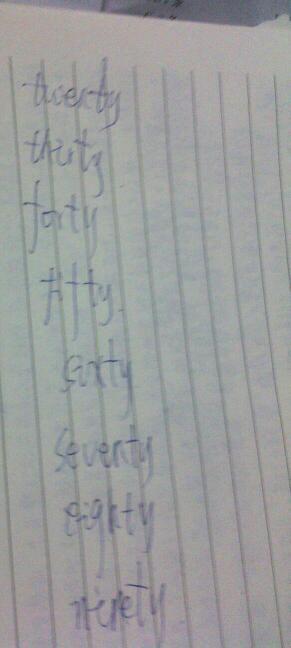 twenty
thirty
forty
fifty.
sixty
seventy
eighty
ninety